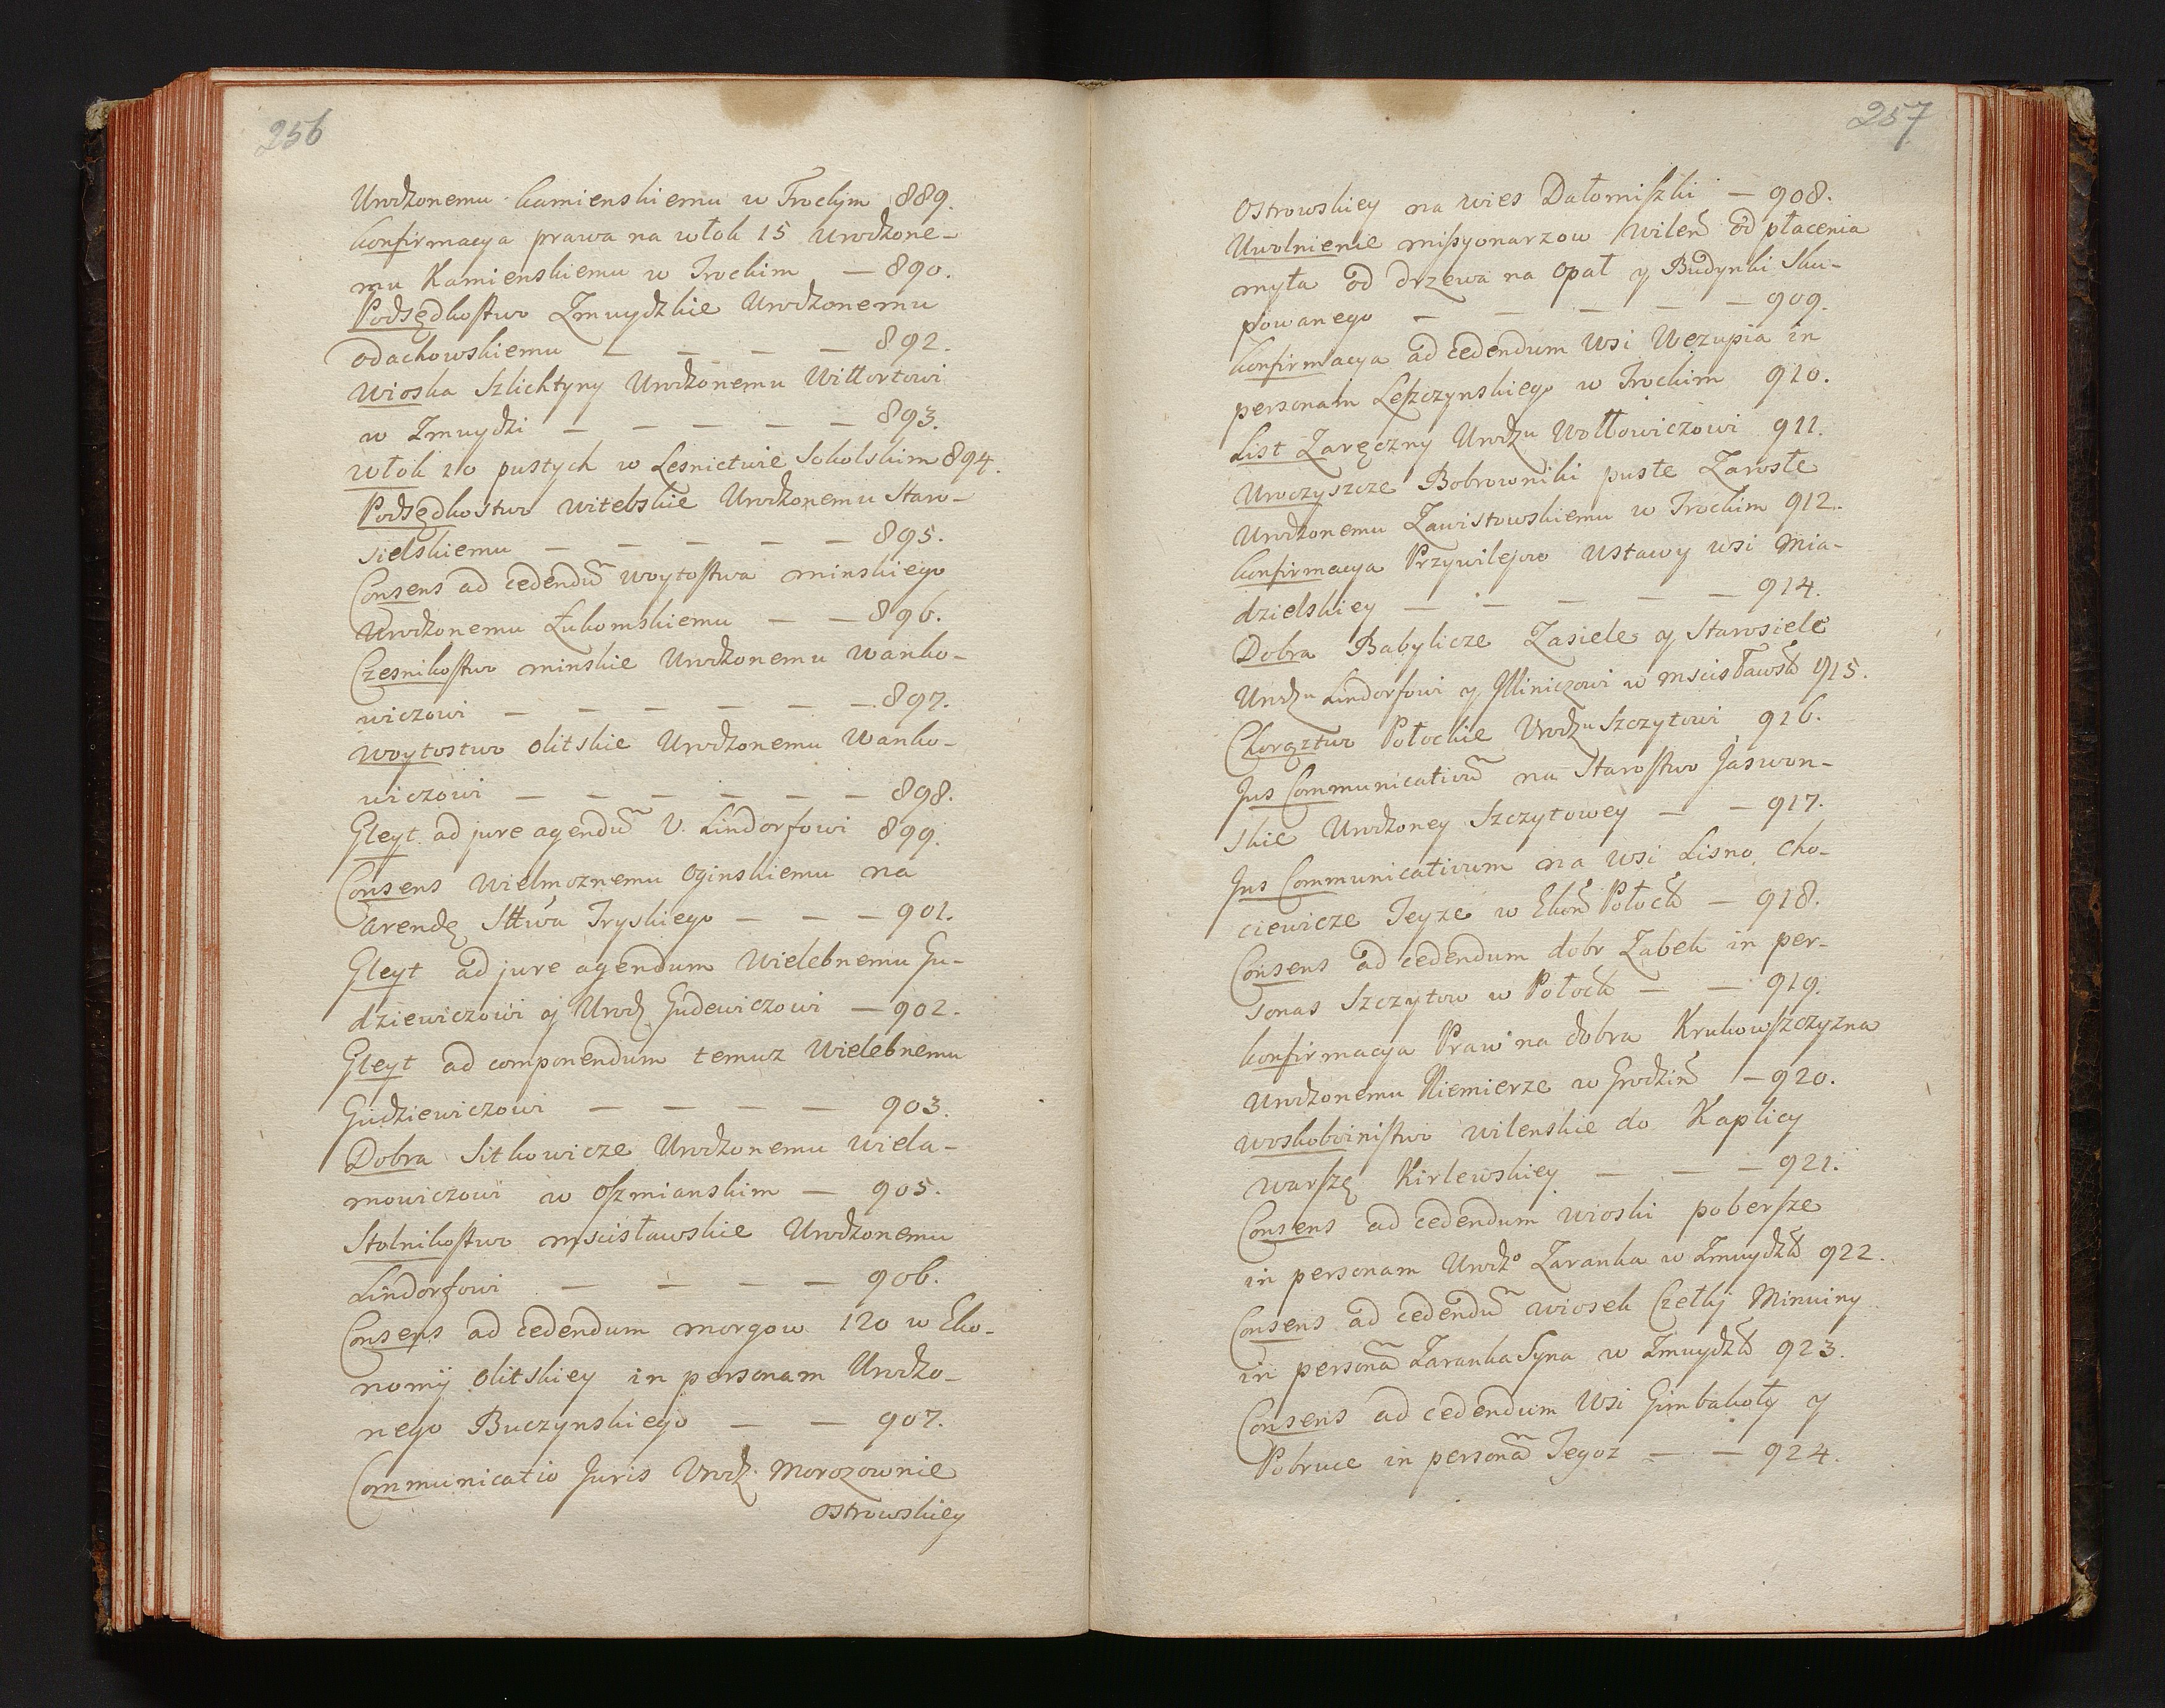 256
Urodzonemu Kamienskiemu w Trockim 889.
Konfirmacya prawa na włok 15 Urodzone-
mu Kamienskiemu w Trockim — 890.
Podsędkostwo Zmuydzkie Urodzonemu
Odachowskiemu — — — — 892.
Wioska Szlichtyny Urodzonemu Wittortowi
w Zmuydzi — — — — — 893.
Włok 10 pustych w Lesnictwie Sokolskim 894.
Podsędkostwo Witebskie Urodzonemu Staro-
sielskiemu — — — — — 895.
Consens ad cedendũ Woytostwa minskiego
Urodzonemu Łukomskiemu — — 896.
Czesnikostwo minskie Urodzonemu Wanko-
wiczowi — — — — — — 897.
Woytostwo Olitskie Urodzonemu Wanko-
wiczowi — — — — — — 898.
Gleyt ad jure agendũ U. Lindorfowi 899.
Consens Wielmoznemu Oginskiemu na
arendę Sttwa Tryskiego — — — 901.
Gleyt ad jure agendum Wielebnemu Gu-
dziewiczowi y Urodz Gudewiczowi — 902.
Gleyt ad componendum temuz Wielebnemu
Gudziewiczowi — — — — 903.
Dobra Sitkowicze Urodzonemu Wiela-
mowiczowi w Oszmianskim — 905.
Stolnikostwo mscisławskie Urodzonemu
Lindorfowi — — — — 906.
Consens ad cedendum morgow 120 w Eko-
nomij Olitskiey in personam Urodzo-
nego Buczynskiego — — 907.
Communicatio Juris Urodz. Morozownie
Ostrowskiey
257
Ostrowskiey na wies Datomiszki — 908.
Uwolnienie missyonarzow Wileñ od płacenia
myta od drzewa na opał y Budynki Sku-
powanego — — — — — 909.
Konfirmacya ad cedendum Wsi Wezupia in
personam Leszczynskiego w Trockim 910.
List Zaręczny Urodzu Wołłowiczowi 911.
Uroczyszcze Bobrowniki puste Zarosłe
Urodzonemu Zawistowskiemu w Trockim 912.
Konfirmacya Przywilejow Ustawy wsi Mia-
dzielskiey — — — — — 914.
Dobra Babylicze Zasiele y Starosiele
Urodzu Lindorfowi y Illiniczowi w mscisławsk 915.
Chorąztwo Połockie Urodzu Szczytowi 916.
Jus Communicativũ na Starostwo Jaswon-
skie Urodzoney Szczytowey — — 917.
Jus Communicativum na wsi Lisno, Cho-
ciewicze Teyze w Ekoñ Połock — 918.
Consens ad cedendum dobr Zabek in per-
sonas Szczytow w Połock — — 919.
Konfirmacya Praw na dobra Krukowszczyzna
Urodzonemu Niemierze w Grodziñ — 920.
Woskoboinistwo wilenskie do Kaplicy
warszę Kirlewskiey — — — 921.
Consens ad cedendum wioski pobersze
in personam Urodzo Zaranka w Zmuydzk 922.
Consens ad cedendũ wiosek Czetkij Minuiny
in personã Zaranka Syna w Zmuydzk 923.
Consens ad cedendum Wsi Gimbakoły y
Pobruce in personã Tegoz — — 924.